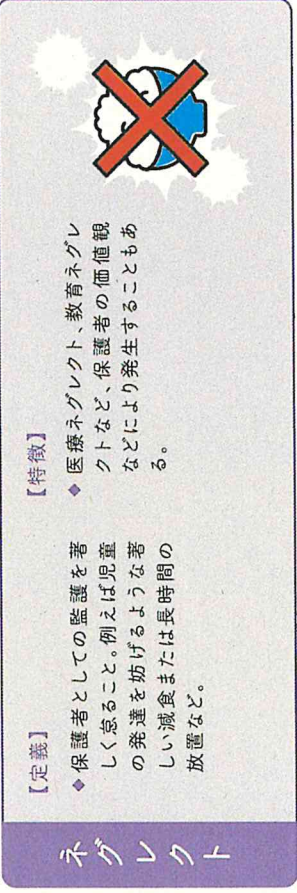 ネグレクト
【定義】
◆保護者としての監護を著
しく怠ること。例えば児童
の発達を妨げるような著
しい減食または長時間の
放置など。
【特徴】
◆医療ネグレクト、教育ネグレ
クトなど、保護者の価値観
などにより発生することもあ
る。